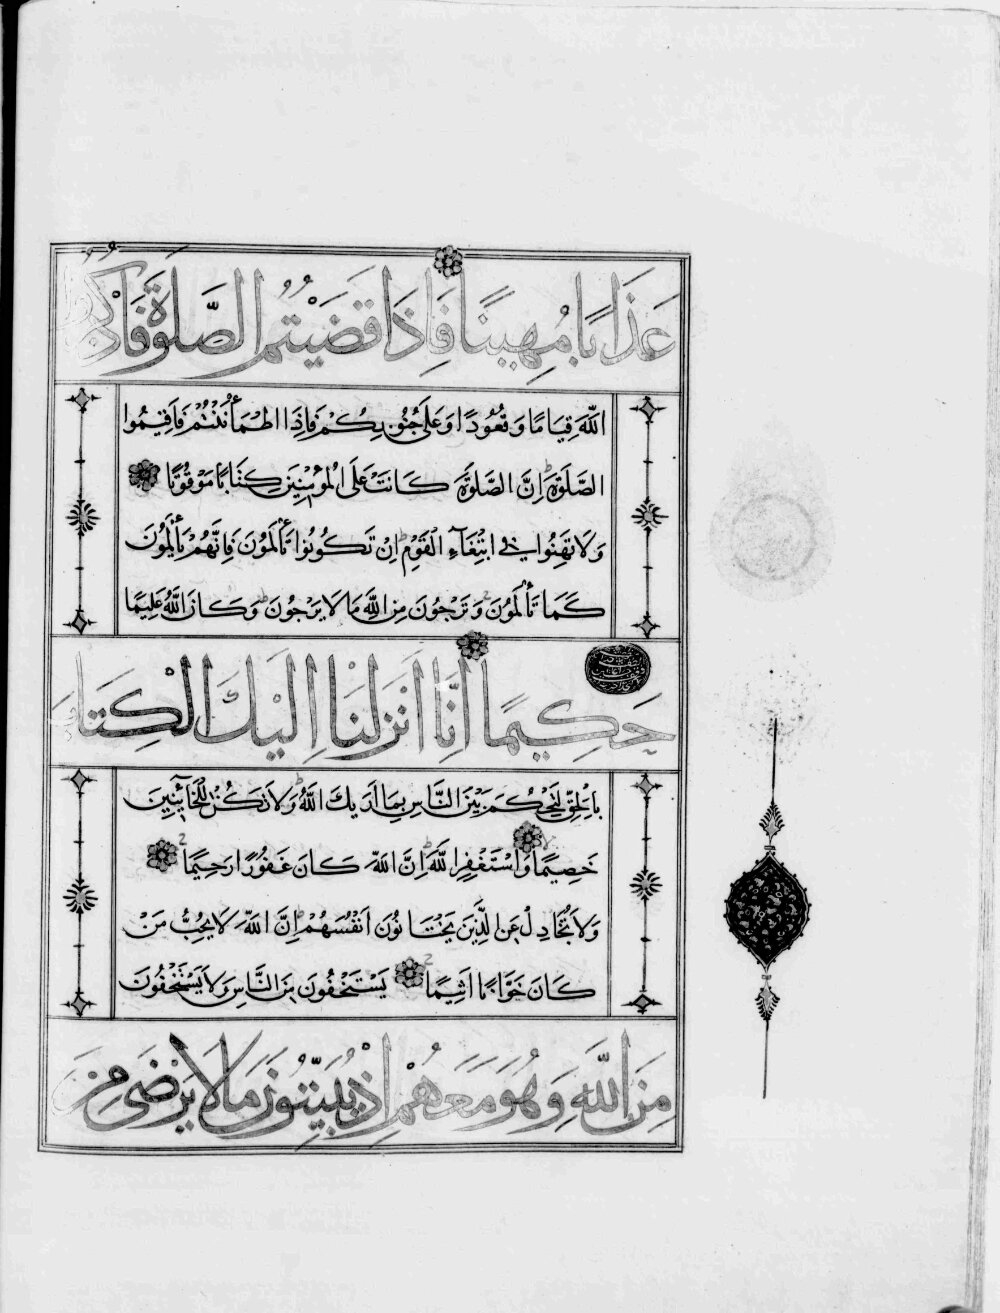 عَذَابًا مُهِينًا فَاِذَا قَضَيْتُمُ الصَّلٰوةَ فَاذْكُرُوا
اللّٰهَ قِيَامًا وَقُعُودًا وَعَلٰى جُنُوبِكُمْ فَاِذَا اطْمَأْنَنْتُمْ فَاَقِيمُوا
الصَّلٰوةَ اِنَّ الصَّلٰوةَ كَانَتْ عَلَى الْمُؤْمِنِينَ كِتَابًا مَوْقُوتًا
وَلَا تَهِنُوا فِي ابْتِغَآءِ الْقَوْمِ اِنْ تَكُونُوا تَأْلَمُونَ فَاِنَّهُمْ يَأْلَمُونَ
كَمَا تَأْلَمُونَ وَتَرْجُونَ مِنَ اللّٰهِ مَا لَا يَرْجُونَ وَكَانَ اللّٰهُ عَلِيمًا
حَكِيمًا اِنَّا اَنْزَلْنَا اِلَيْكَ الْكِتَابَ
بِالْحَقِّ لِتَحْكُمَ بَيْنَ النَّاسِ بِمَا اَرٰيكَ اللّٰهُ وَلَا تَكُنْ لِلْخَآئِنِينَ
خَصِيمًا وَاسْتَغْفِرِ اللّٰهَ اِنَّ اللّٰهَ كَانَ غَفُورًا رَحِيمًا
وَلَا تُجَادِلْ عَنِ الَّذِينَ يَخْتَانُونَ اَنْفُسَهُمْ اِنَّ اللّٰهَ لَا يُحِبُّ مَنْ
كَانَ خَوَّانًا اَثِيمًا يَسْتَخْفُونَ مِنَ النَّاسِ وَلَا يَسْتَخْفُونَ
مِنَ اللّٰهِ وَهُوَ مَعَهُمْ اِذْ يُبَيِّتُونَ مَا لَا يَرْضٰى مِنَ